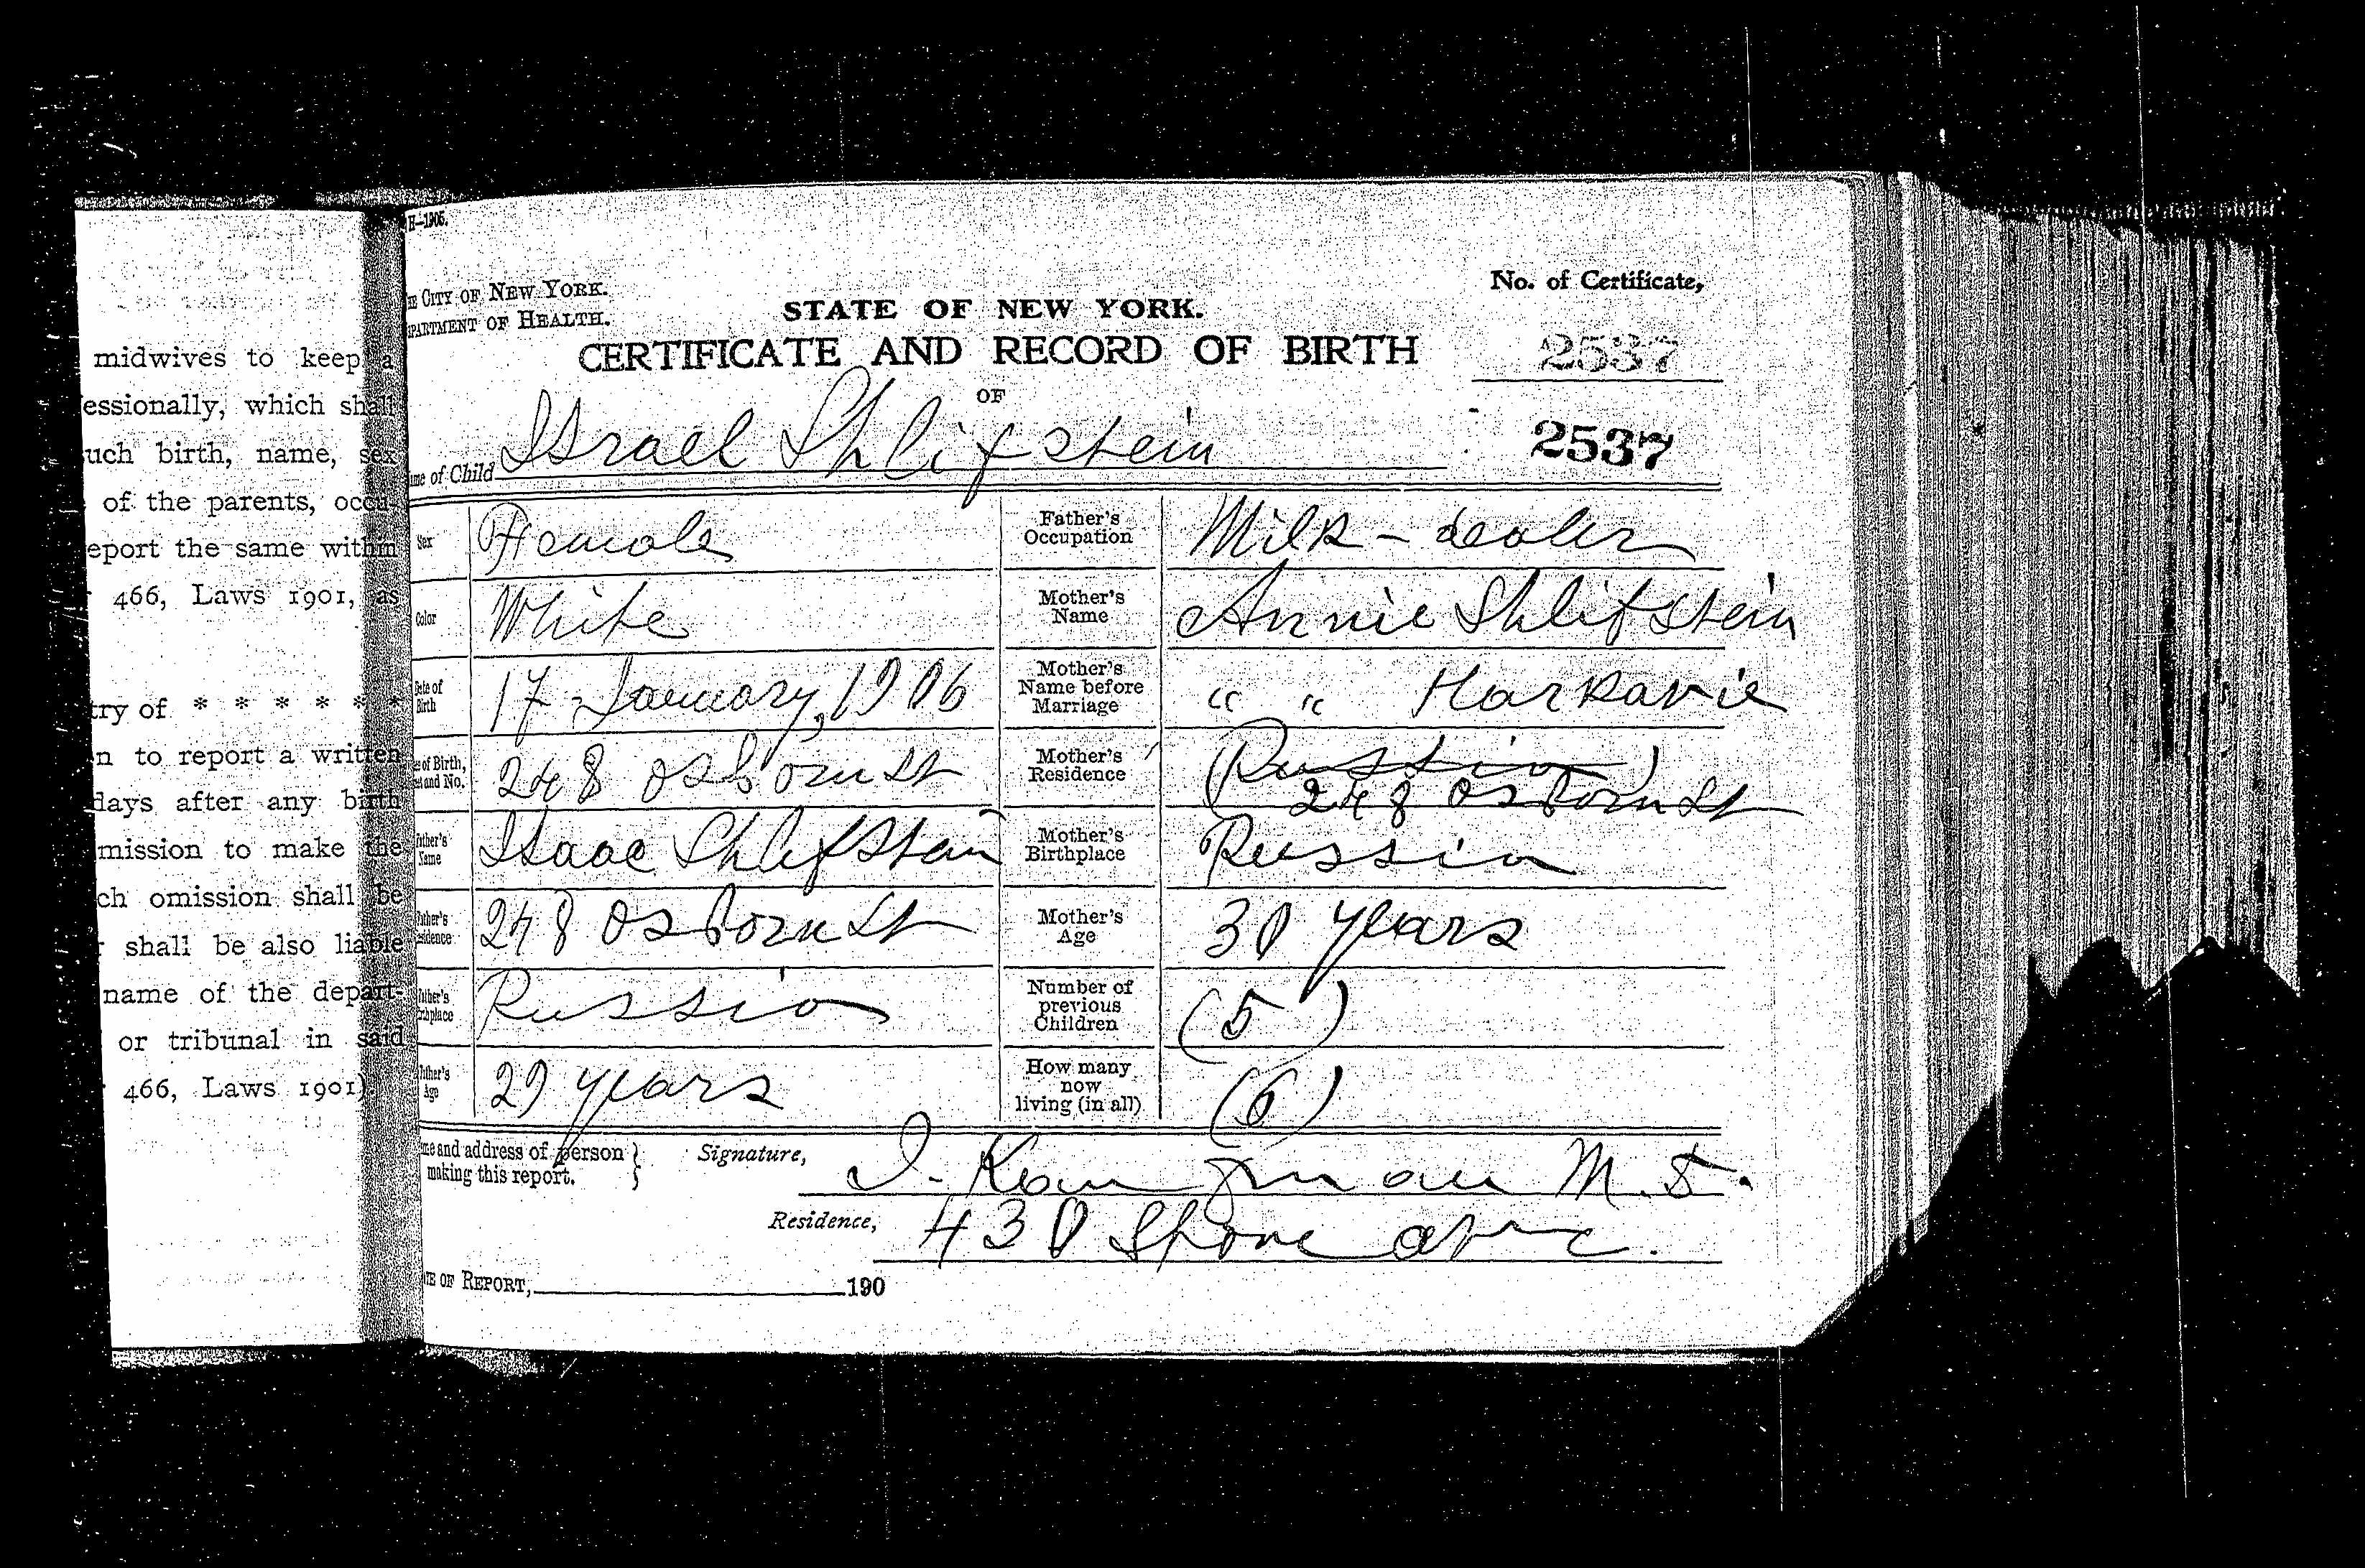 midwives to keep a
essionally, which shall
uch birth, name, sex
of the parents, occu-
eport the same within
466, Laws 1901, as
try of * * * * * *
n to report a written
days after any birth
mission to make the
ch omission shall be
shall be also liable
name of the depart-
or tribunal in said
466, Laws 1901).
H—1905.
E CITY OF NEW YORK.
PARTMENT OF HEALTH.
STATE OF NEW YORK.
CERTIFICATE AND RECORD OF BIRTH
OF
No. of Certificate,
2537
2537
me of Child Israel Shlifstein
Sex Female
Color White
Date of Birth 17 January, 1906
e of Birth, et and No. 248 Osborn St
ather's Name Isaac Shlifstein
ather's sidence 248 Osborn St
ather's rthplace Russia
ather's Age 29 years
Father's Occupation Milk - dealer
Mother's Name Annie Shlifstein
Mother's Name before Marriage " " Harkavie
Mother's Residence (Russia) 248 Osborn St
Mother's Birthplace Russia
Mother's Age 30 years
Number of previous Children (5)
How many now living (in all) (6)
me and address of person
making this report.
Signature, M.D.
Residence, 430
TE OF REPORT, 190